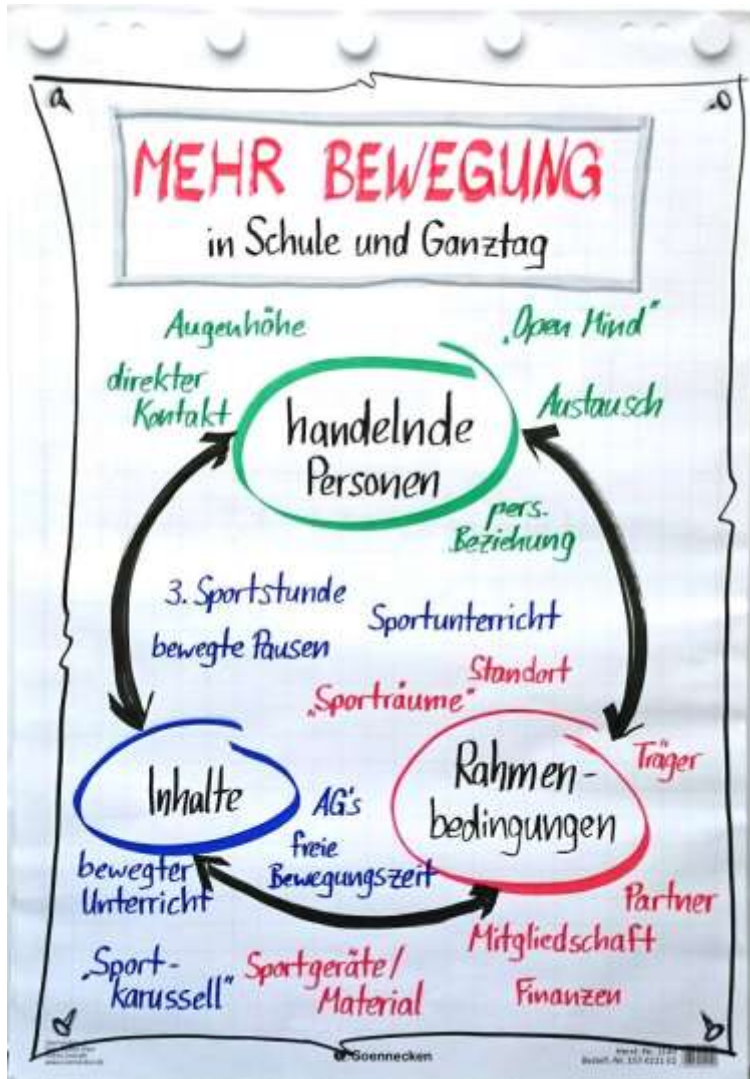 MEHR BEWEGUNG
in Schule und Ganztag
Augenhöhe
„Open Mind"
direkter
Kontakt
Austausch
handelnde
Personen
pers.
Beziehung
3. Sportstunde
Sportunterricht
bewegte Pausen
Standort
„Sporträume"
Träger
Inhalte
Rahmen-
bedingungen
AG's
freie
Bewegungszeit
bewegter
Unterricht
Partner
Mitgliedschaft
„Sport-
karussell"
Sportgeräte/
Material
Finanzen
Soennecken